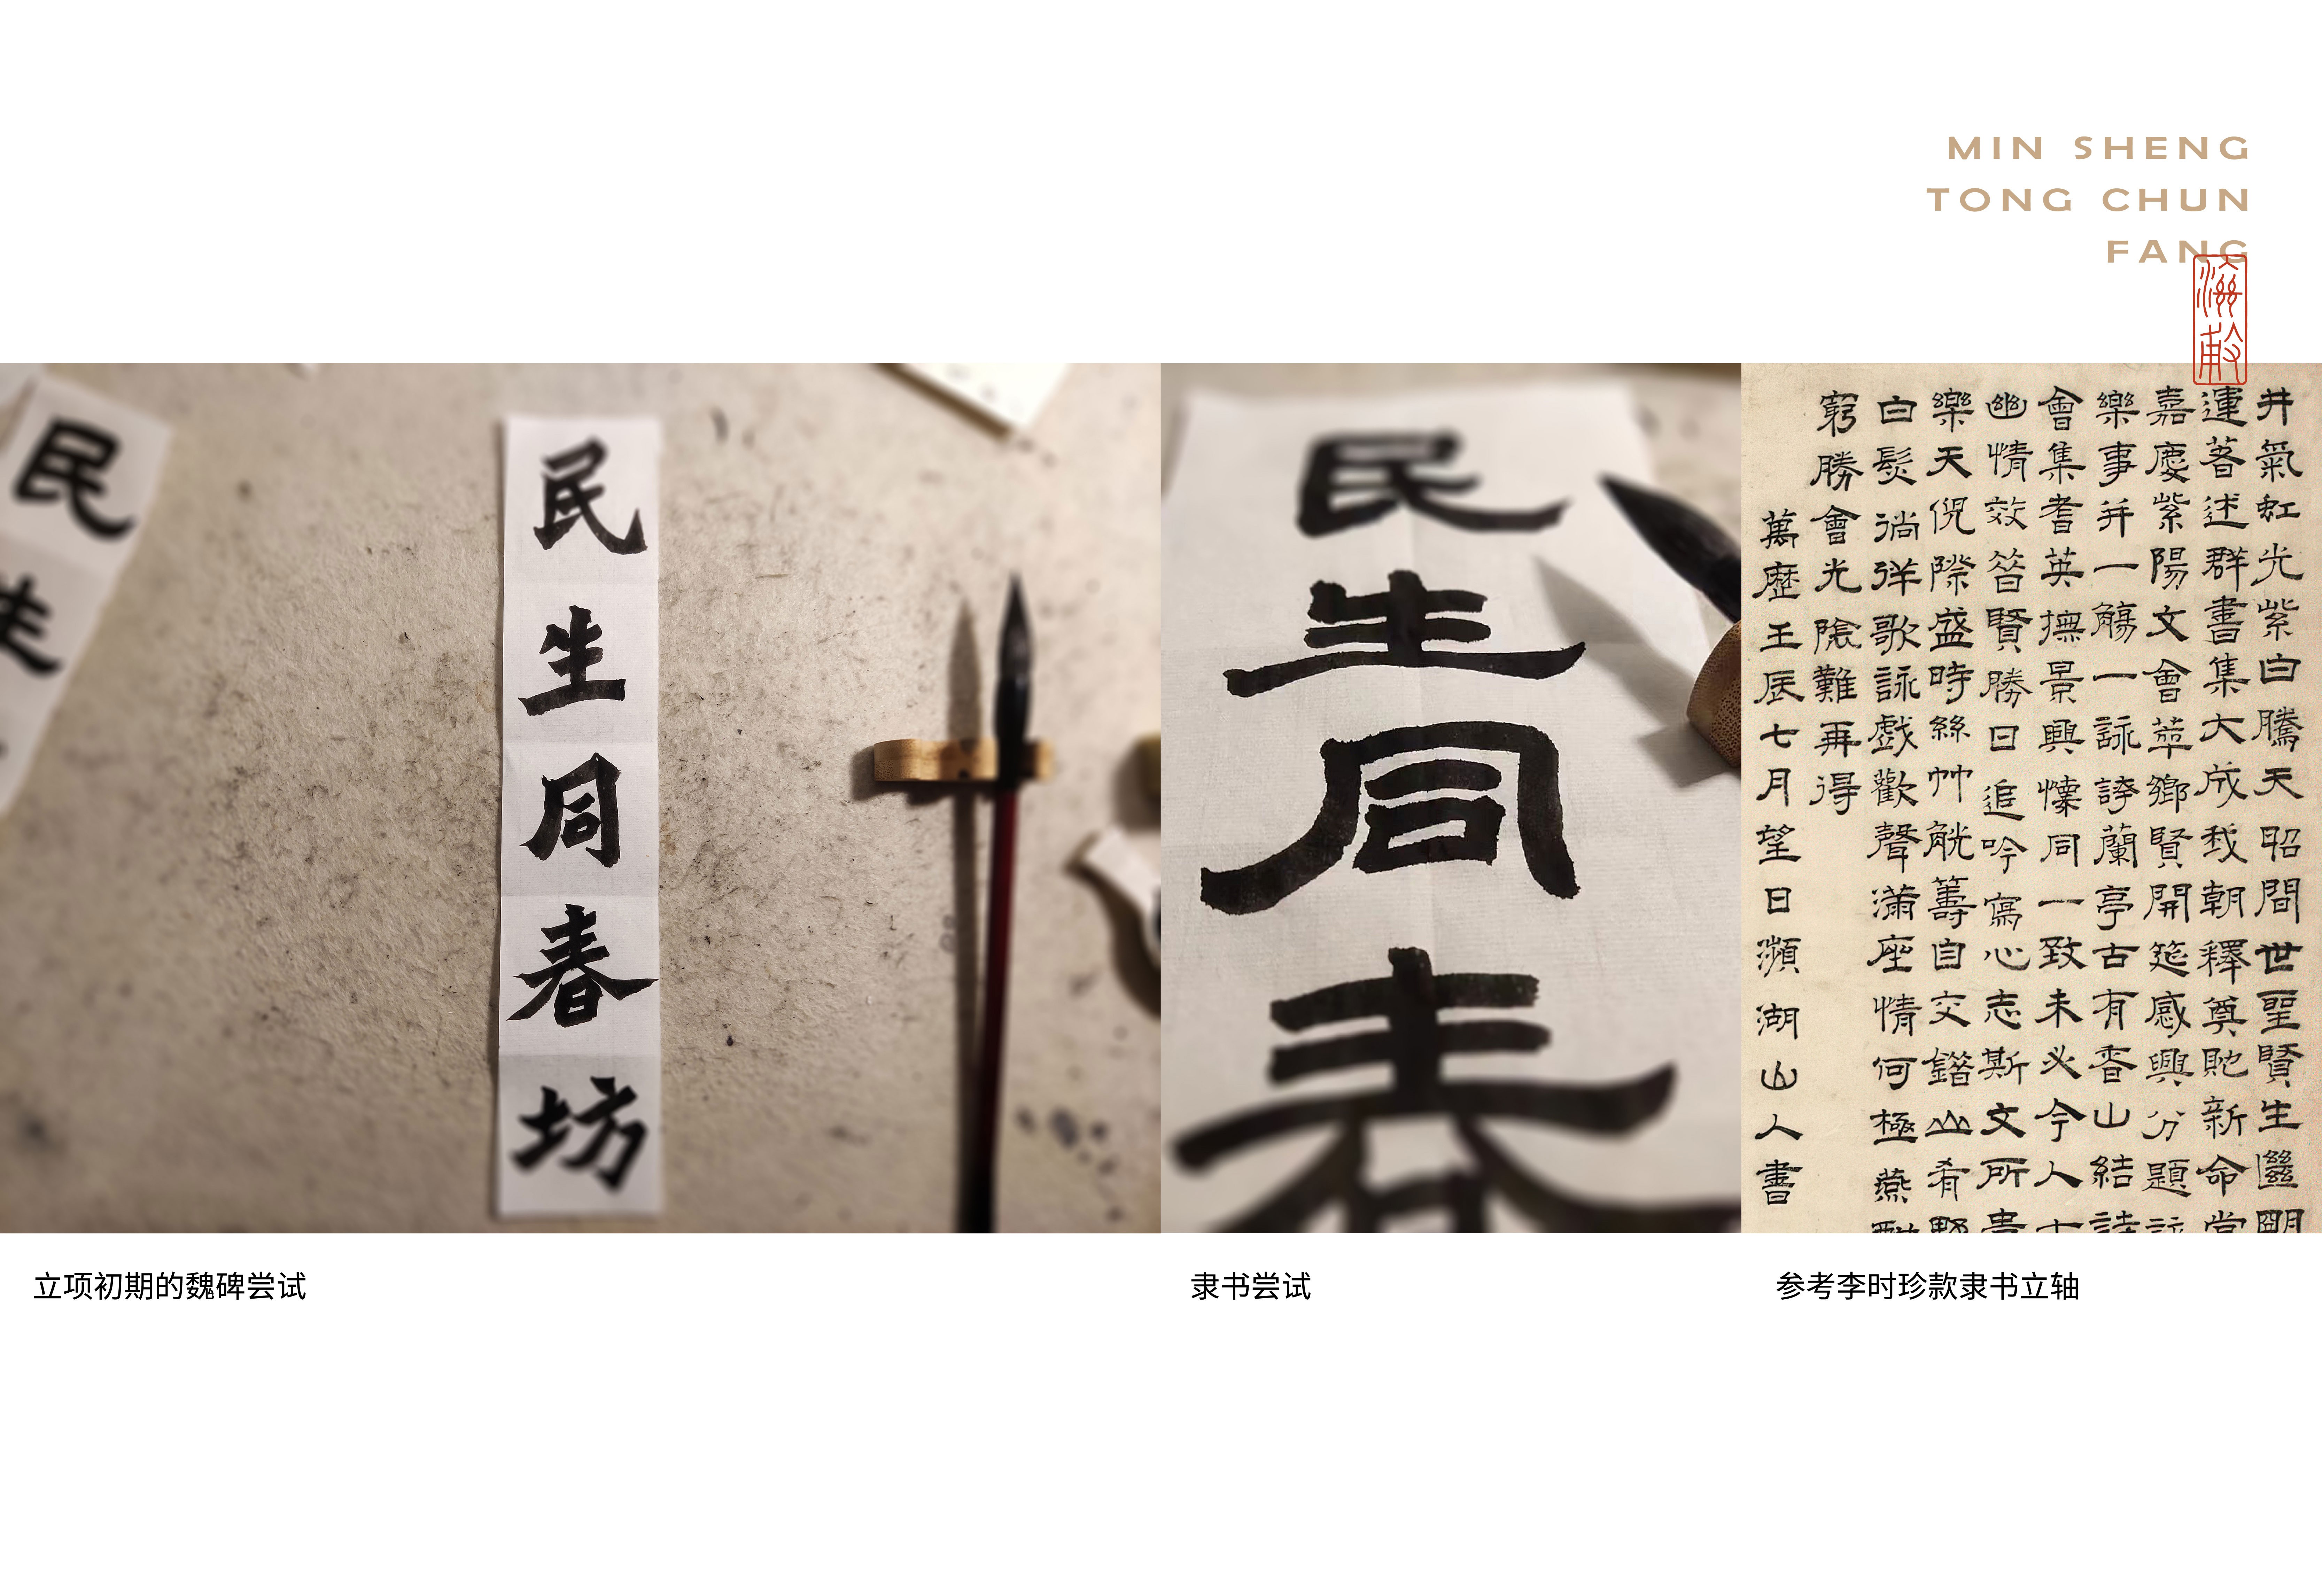 MIN SHENG
TONG CHUN
FANG
民
民生同春坊
民生同春
井氣虹光紫白騰天昭間世聖賢生
運著述群書集大成我朝釋奠貤新命
嘉慶紫陽文會萃鄉賢開筵感興分題
樂事并一觴一詠誇蘭亭古有香山結詩
會集耆英撫景興懷同一致未必今人
幽情效昝賢勝日追吟寫心志斯文所
樂天倪際盛時絲竹觥籌自交錯山肴野
白髮徜徉歌詠戲歡聲滿座情何極燕
窮勝會光陰難再得
萬歷王辰七月望日瀕湖山人書
立项初期的魏碑尝试
隶书尝试
参考李时珍款隶书立轴